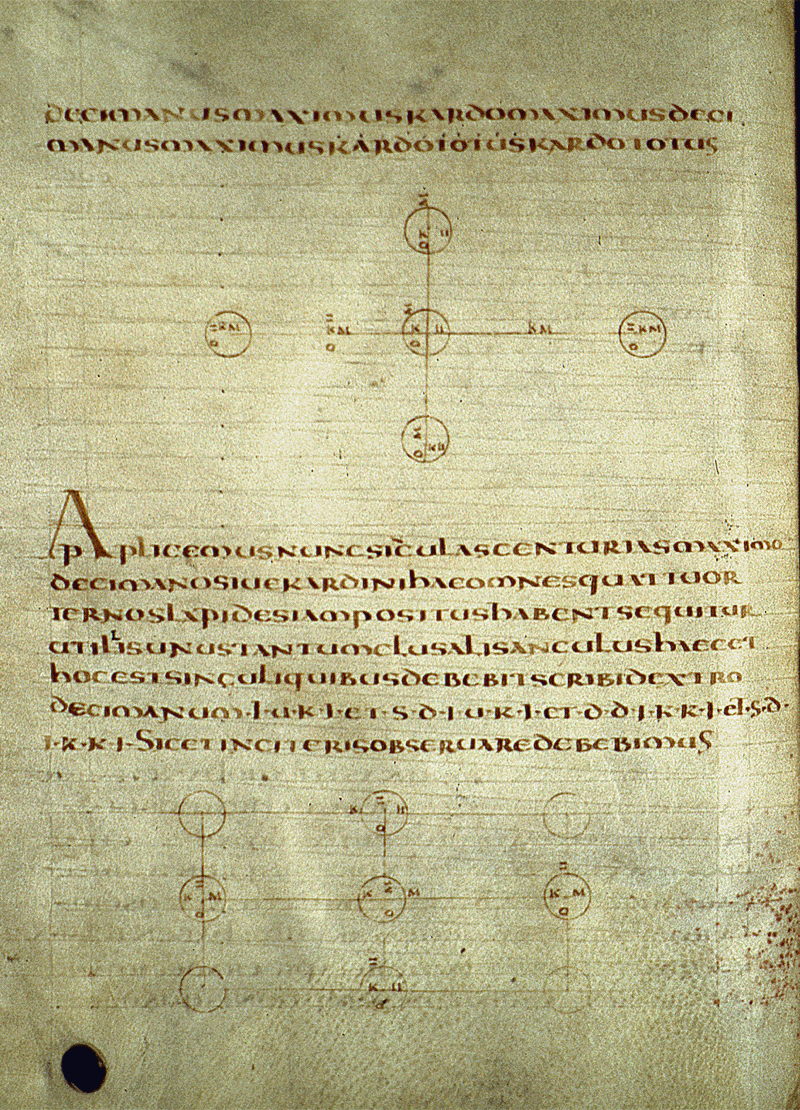 DECIMANUSMAXIMUSKARDOMAXIMUSDECI
MANUSMAXIMUSKARDOTOTUSKARDOTOTUS
M
K II
D
M
K II
D
KM
D
KM
D
KM
KM
D
M
KII
D
APPLICEMUSNUNCSICULASCENTURIASMAXIMO
DECIMANOSIUEKARDINIHAEOMNESQUATTUOR
TERNOSLAPIDESIAMPOSITUSHABENTSEQUITUR
UTILLISUNUSTANTUMCLUSALISANGULUSHAECET
HOCESTSINGULIQUIBUSDEBEBITSCRIBIDEXTRO
DECIMANUM·I·U·K·I·ET·S·D·I·U·K·I·ET·D·D·I·K·K·I·ET·S·D·
I·K·K·I·SICETINCETERISOBSERUAREDEBEBIMUS
K II
D
K M
D
K M
D
K M
D
K II
D